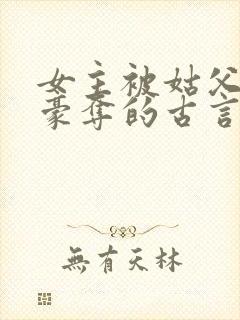 女主被姑父
豪奪的古言
無有天林